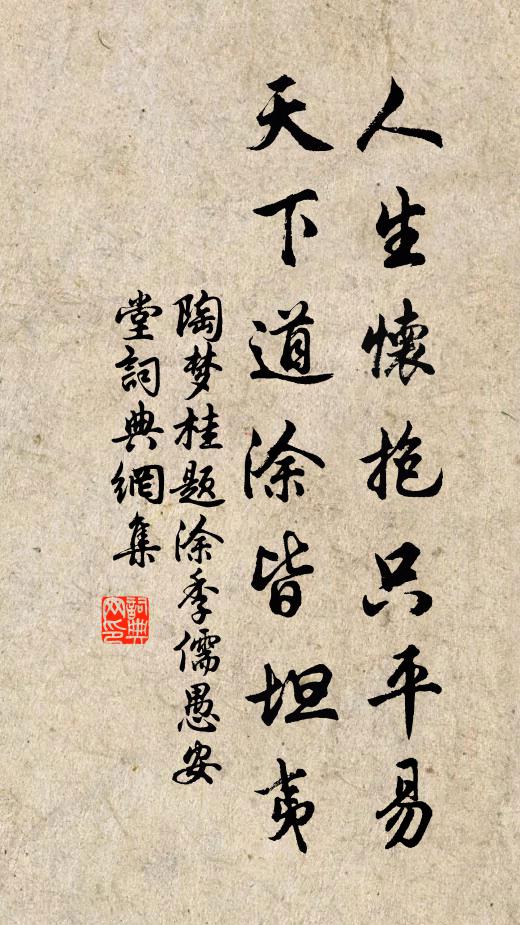 人生懷抱只平易
天下道涂皆坦夷
陶梦桂题涂季儒愚安
堂詞典網集
詞典
网印